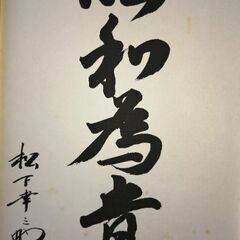 和為貴
松下幸之助